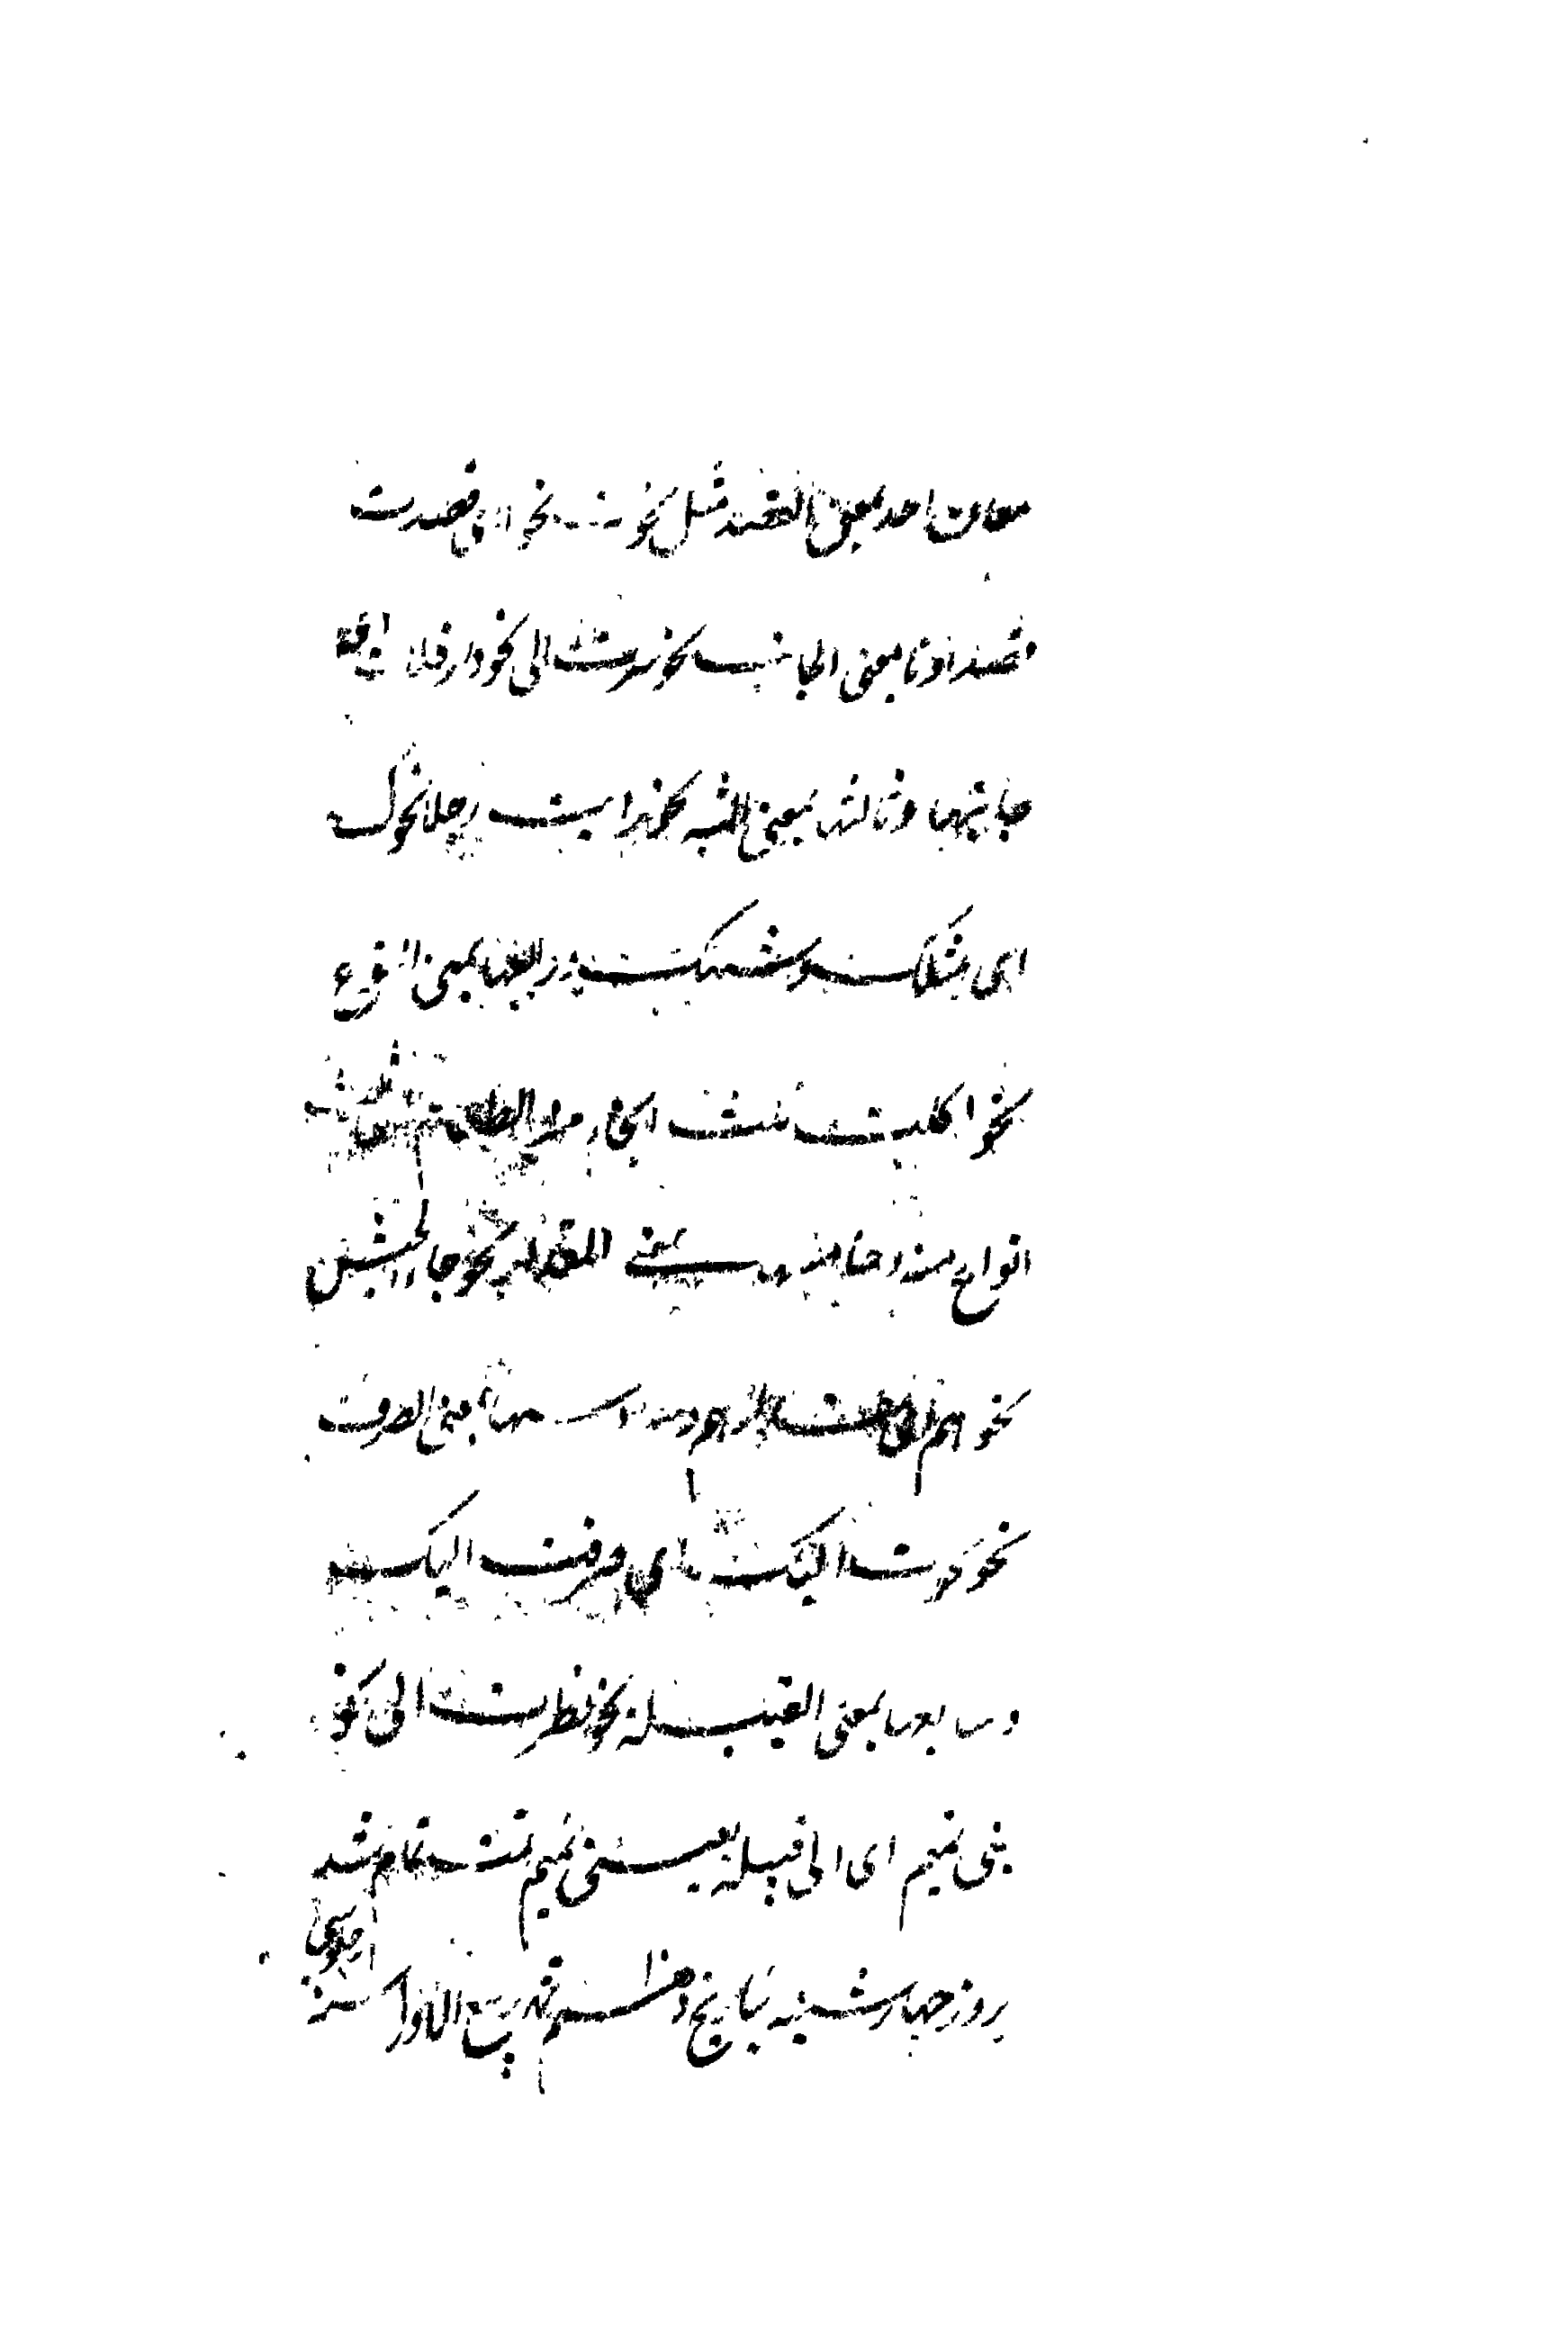 معان احد بمعنى القصد مثل نحوت نحوا اى قصدت
قصدا وثانيا بمعنى الجانب نحو نظرت الى نحو دار فلان اى
جانبها وثالثها بمعنى الشبه نحو رايت رجلا نحوك
اى مثلك وشبهك ورابعها بمعنى النوع
نحو اكلت ثلث انحاء من الطعام اى ثلث
انواع منه وخامسها بمعنى المقدار نحو جاء الجيش
نحو الف وسادسها بمعنى الصرف
نحو نحوت اليك اى صرفت اليك
وسابعها بمعنى القبيلة نحو نظرت الى نحو
بنى تميم اى الى قبيلة بنى تميم تمت تمام شد
بروز چهارشنبه بتاريخ شهر ربيع الاول سنه